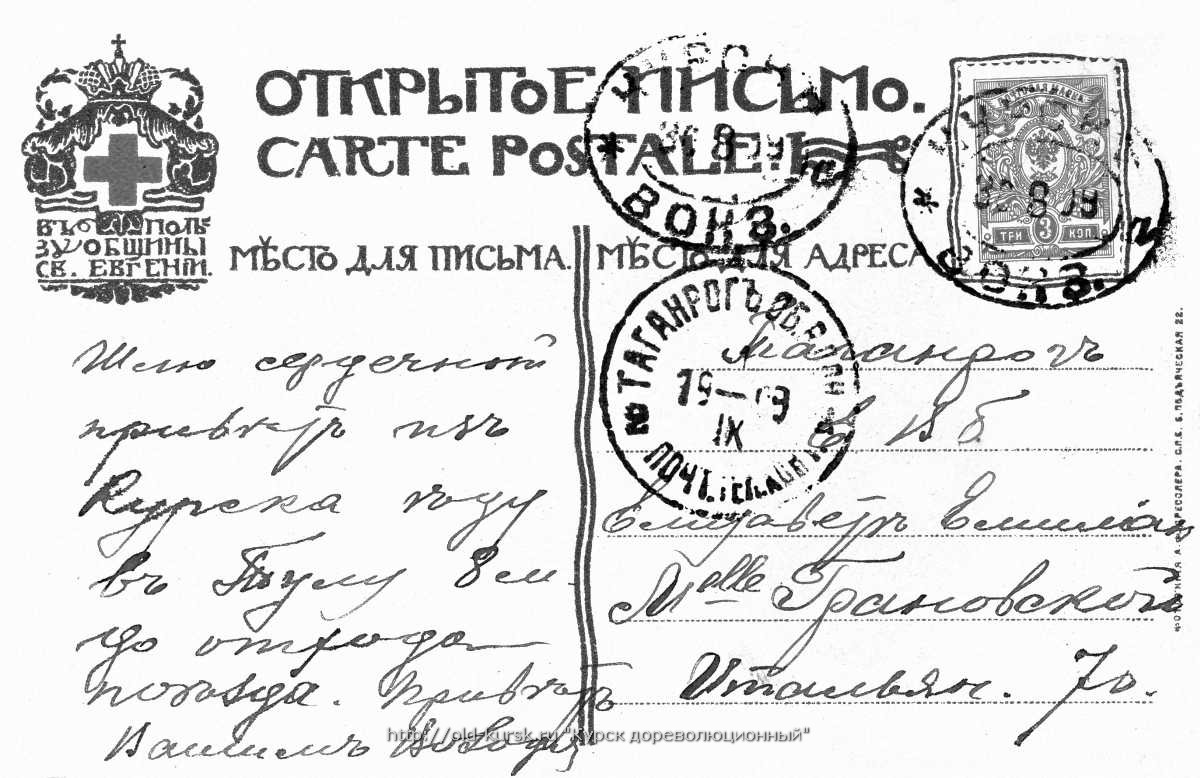 ОТКРЫТОЕ ПИСЬМО.
CARTE POSTALE.
ВЪ ПОЛЬ-
ЗУ ОБЩИНЫ
СВ. ЕВГЕНІИ.
МѢСТО ДЛЯ ПИСЬМА.
МѢСТО ДЛЯ АДРЕСА
* 8 09
ВОКЗ.
* 8 09
ВОКЗ.
ТРИ 3 КОП.
ТАГАНРОГЪ
19—09
IX
ПОЧТ.
Шлю сердечный
привѣтъ изъ
Курска ѣду
въ Тулу
до отхода
поѣзда. Привѣтъ
Вашимъ
Таганрогъ
Е В Б
Елизаветѣ
Melle Грановской
Итальян. 70.
А. ПРЕССЛЕРА. С.П.Б. Б. ПОДЪЯЧЕСКАЯ 22.
http://old-kursk.ru "Курск дореволюционный"